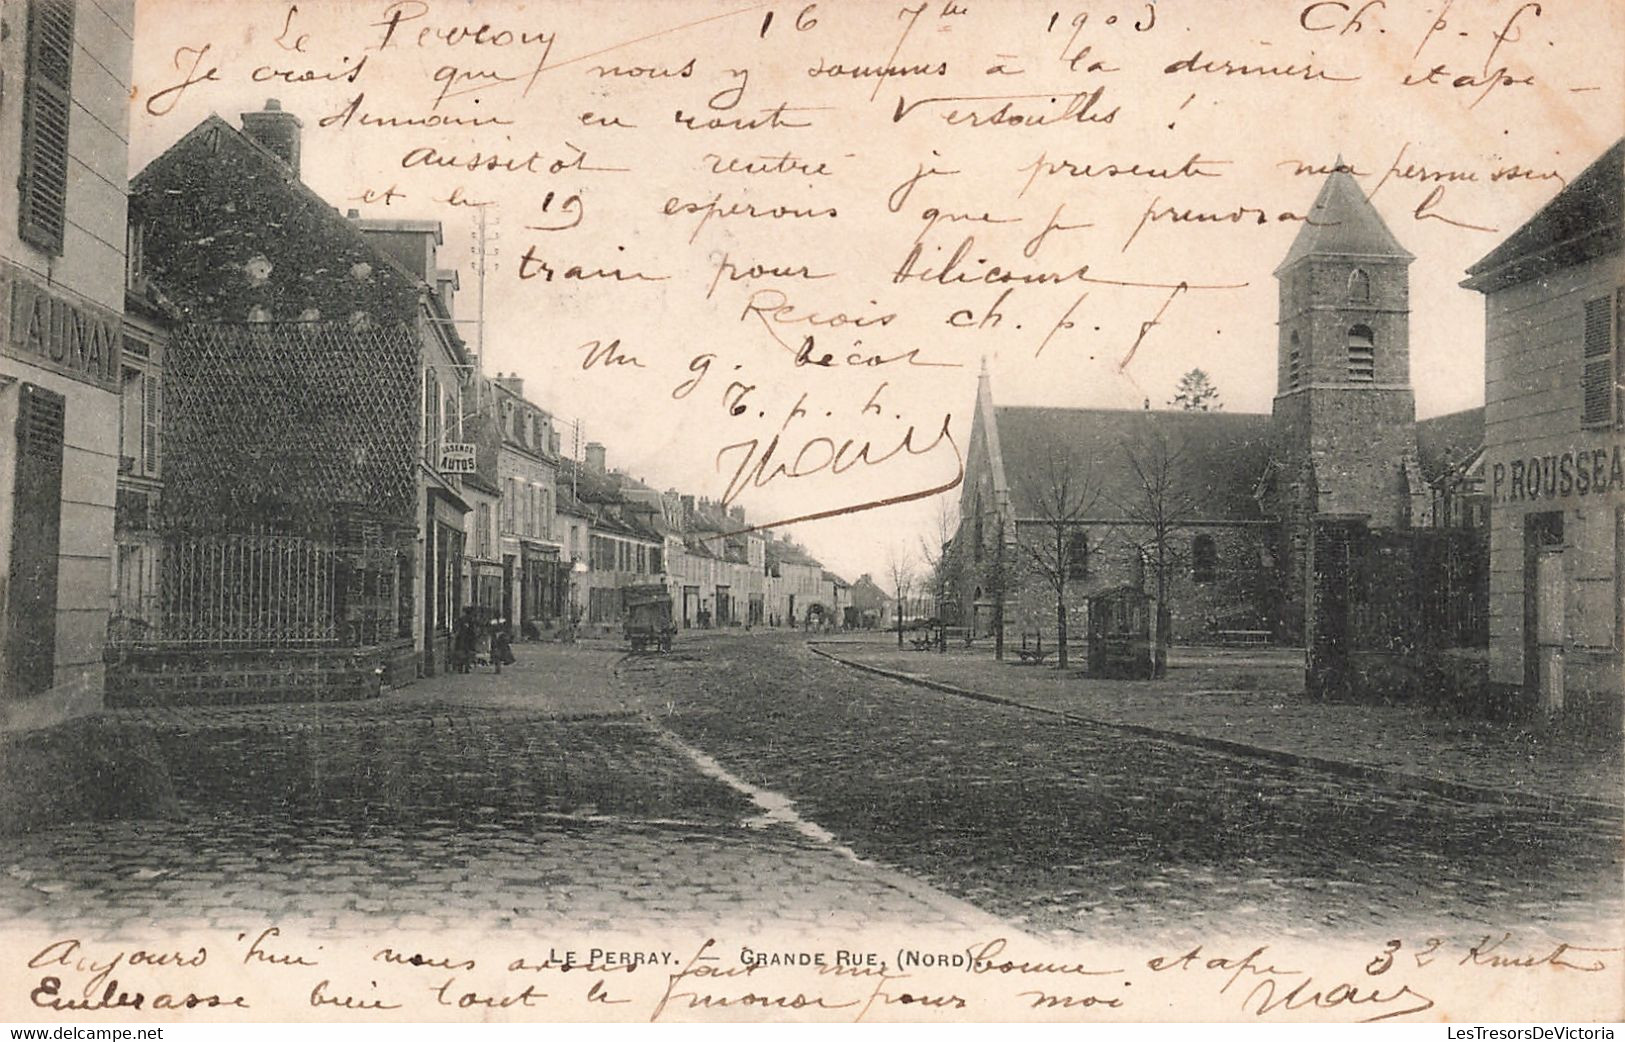 Le Perray 16 7bre 1903. Ch. p. f.
Je crois que nous y sommes à la dernière etape
demain en route Versailles !
Aussitôt rentré je presente ma permission
et le 19 esperons que je prendrai le
train pour
Reçois ch. p. f.
Un g. bécot
T. p. h.
LAUNAY
ESSENCE
AUTOS
P. ROUSSEA
LE PERRAY. — GRANDE RUE, (NORD)
Aujourd'hui nous avons fait une bonne etape 32 Kmet
Embrasse bien tout le monde pour moi
LesTresorsDeVictoria